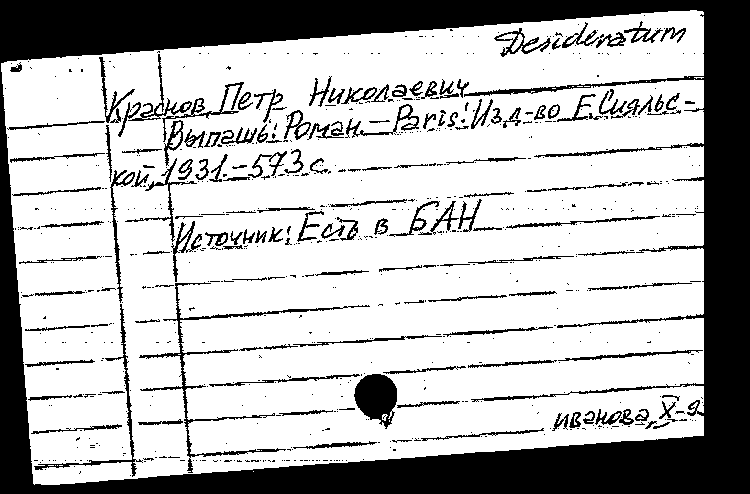 Desideratum
Краснов, Петр Николаевич
Выпашь: Роман. — Paris: Изд-во Е. Сияльс-
кой, 1931. – 573 с.
Источник: Есть в БАН
иванова, X-9